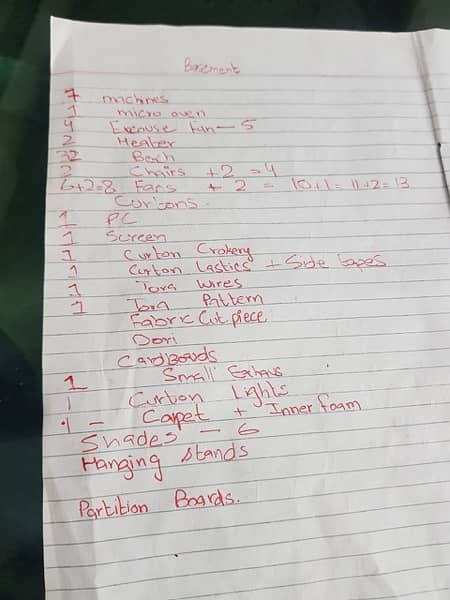 Basement
7 machines
1 micro oven
4 Exouse Fan - 5
2 Heater
32 Bech
2 Chairs +2 = 4
6+2=8 Fans + 2 = 10+1 = 11+2 = 13
Cur'tons.
1 PC
1 Screen
1 Curton Crokery
1 Curton Lastics + Side tapes
1 Tora wires
1 Tora Pattern
Fabric Cut piece
Dori
Cardbouds
1 Small Exhaus
1 Curton Lights
1 - Carpet + Inner foam
Shades - 6
Hanging stands
Partition Boards.